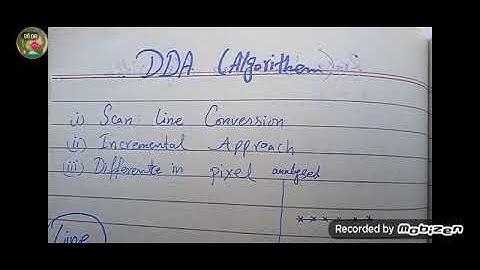 DDA (Algorithem)
i) Scan Line Conversion
ii) Incremental Approach
iii) Difference in pixel analyzed
x x x x x x x
Line
Recorded by Mobizen